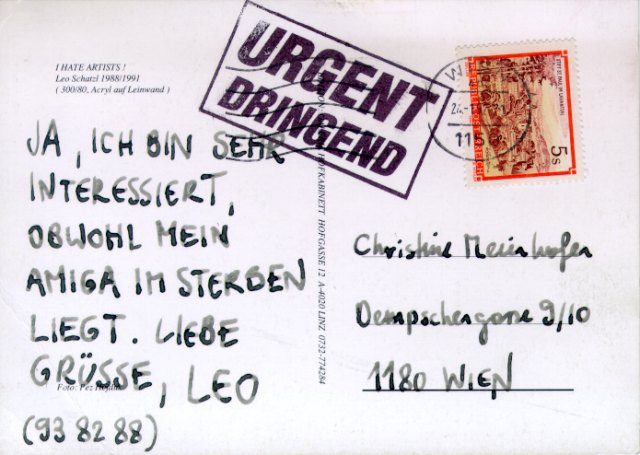 I HATE ARTISTS !
Leo Schatzl 1988/1991
( 300/80, Acryl auf Leinwand )
URGENT
DRINGEND
JA, ICH BIN SEHR
INTERESSIERT,
OBWOHL MEIN
AMIGA IM STERBEN
LIEGT. LIEBE
GRÜSSE, LEO
(93 82 88)
Foto: Pez
HOFGASSE 12 A-4020 LINZ 0732-774284
5s
Christine Meierhofer
Dempschergasse 9/10
1180 WIEN